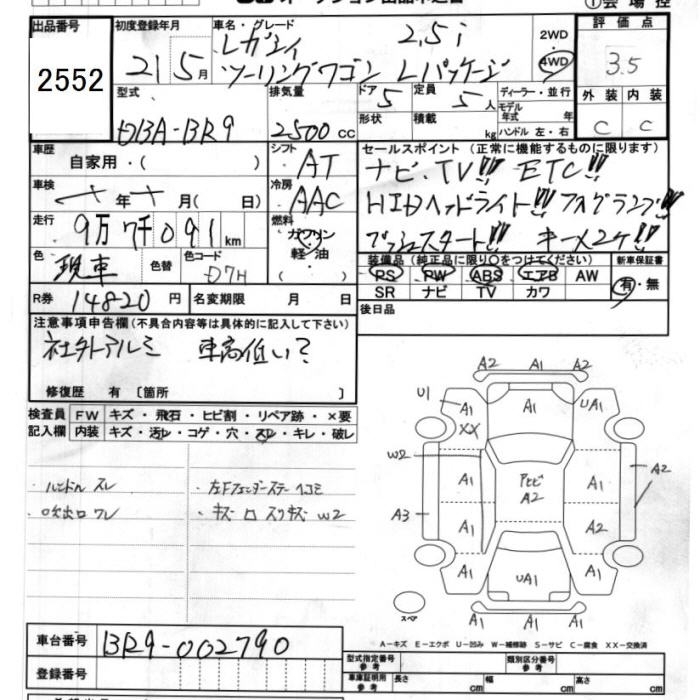 出品番号
2552
初度登録年月
21 5月
車名・グレード
レガシィ 2,5i
ツーリングワゴン Lパッケージ
2WD
4WD
評価点
3.5
外装 内装
C C
型式
DBA-BR9
排気量
2500cc
ドア
5
形状
定員
5人
積載
kg
ディーラー・並行
モデル
年式 年
ハンドル 左・右
車歴
自家用・( )
シフト
AT
車検
年 月( 日)
冷房
AAC
走行
9万7千091km
燃料
ガソリン
軽油
色
現車
色替
色コード
D7H
R券 14820円
名変期限 月 日
セールスポイント(正常に機能するものに限ります)
ナビ、TV!! ETC!!
HIDヘッドライト!! フォグランプ!!
プッシュスタート!! キーメ2ケ!!
装備品(純正品に限り○をつけてください)
PS PW ABS エアB AW
SR ナビ TV カワ
新車保証書
有・無
後日品
注意事項申告欄(不具合内容等は具体的に記入して下さい)
社外アルミ 車高低い?
修復歴 有[箇所 ]
検査員
記入欄
FW キズ・飛石・ヒビ割・リペア跡・×要
内装 キズ・汚レ・コゲ・穴・スレ・キレ・破レ
・ハンドルスレ
・吹出口ワレ
・左Fフェンダーステーヘコミ
A2 A1 A2
U1 A1 XX A1 UA1
W2 A1 アヒビ A2 A1 A2
A3 A1 A2
A1 UA1 A1
A2 A1 A1
スペア
A-キズ E-エクボ U-凹み W-補修跡 S-サビ C-腐食 XX-交換済
車台番号 BR9-002790
登録番号
型式指定番号
参考
類別区分番号
参考
車庫証明用
参考
長さ cm 幅 cm 高さ cm